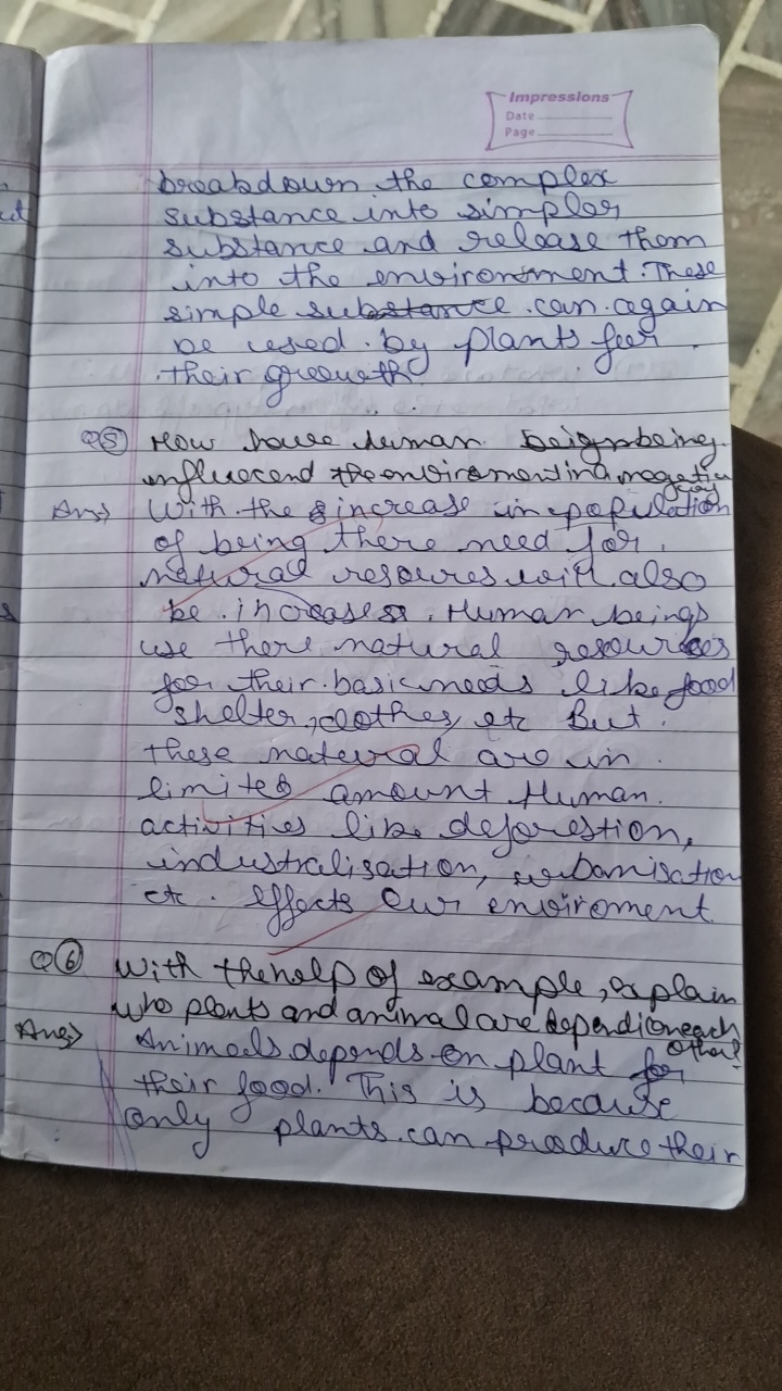 Impressions
Date
Page
breabdown the complex
substance into simpler
substance and release them
into the environment. These
simple substance can again
be used by plants for
their groweth
Q5 How have human being
influecend the enviroment in a negative
way
Ans) With the increase in population
of being there need for
natural resoures will also
be increases. Human beings
use there natural resources
for their basic needs like food
shelter, clothes, etc But
these natural are in
limited amount Human
activities like deforestion,
industralisation, urbanisation
etc. effects our enviroment
Q6 With the help of example, explain
who plants and animal are dependion each
other?
Ans) Animals depends on plant for
their food. This is because
only plants can produce their